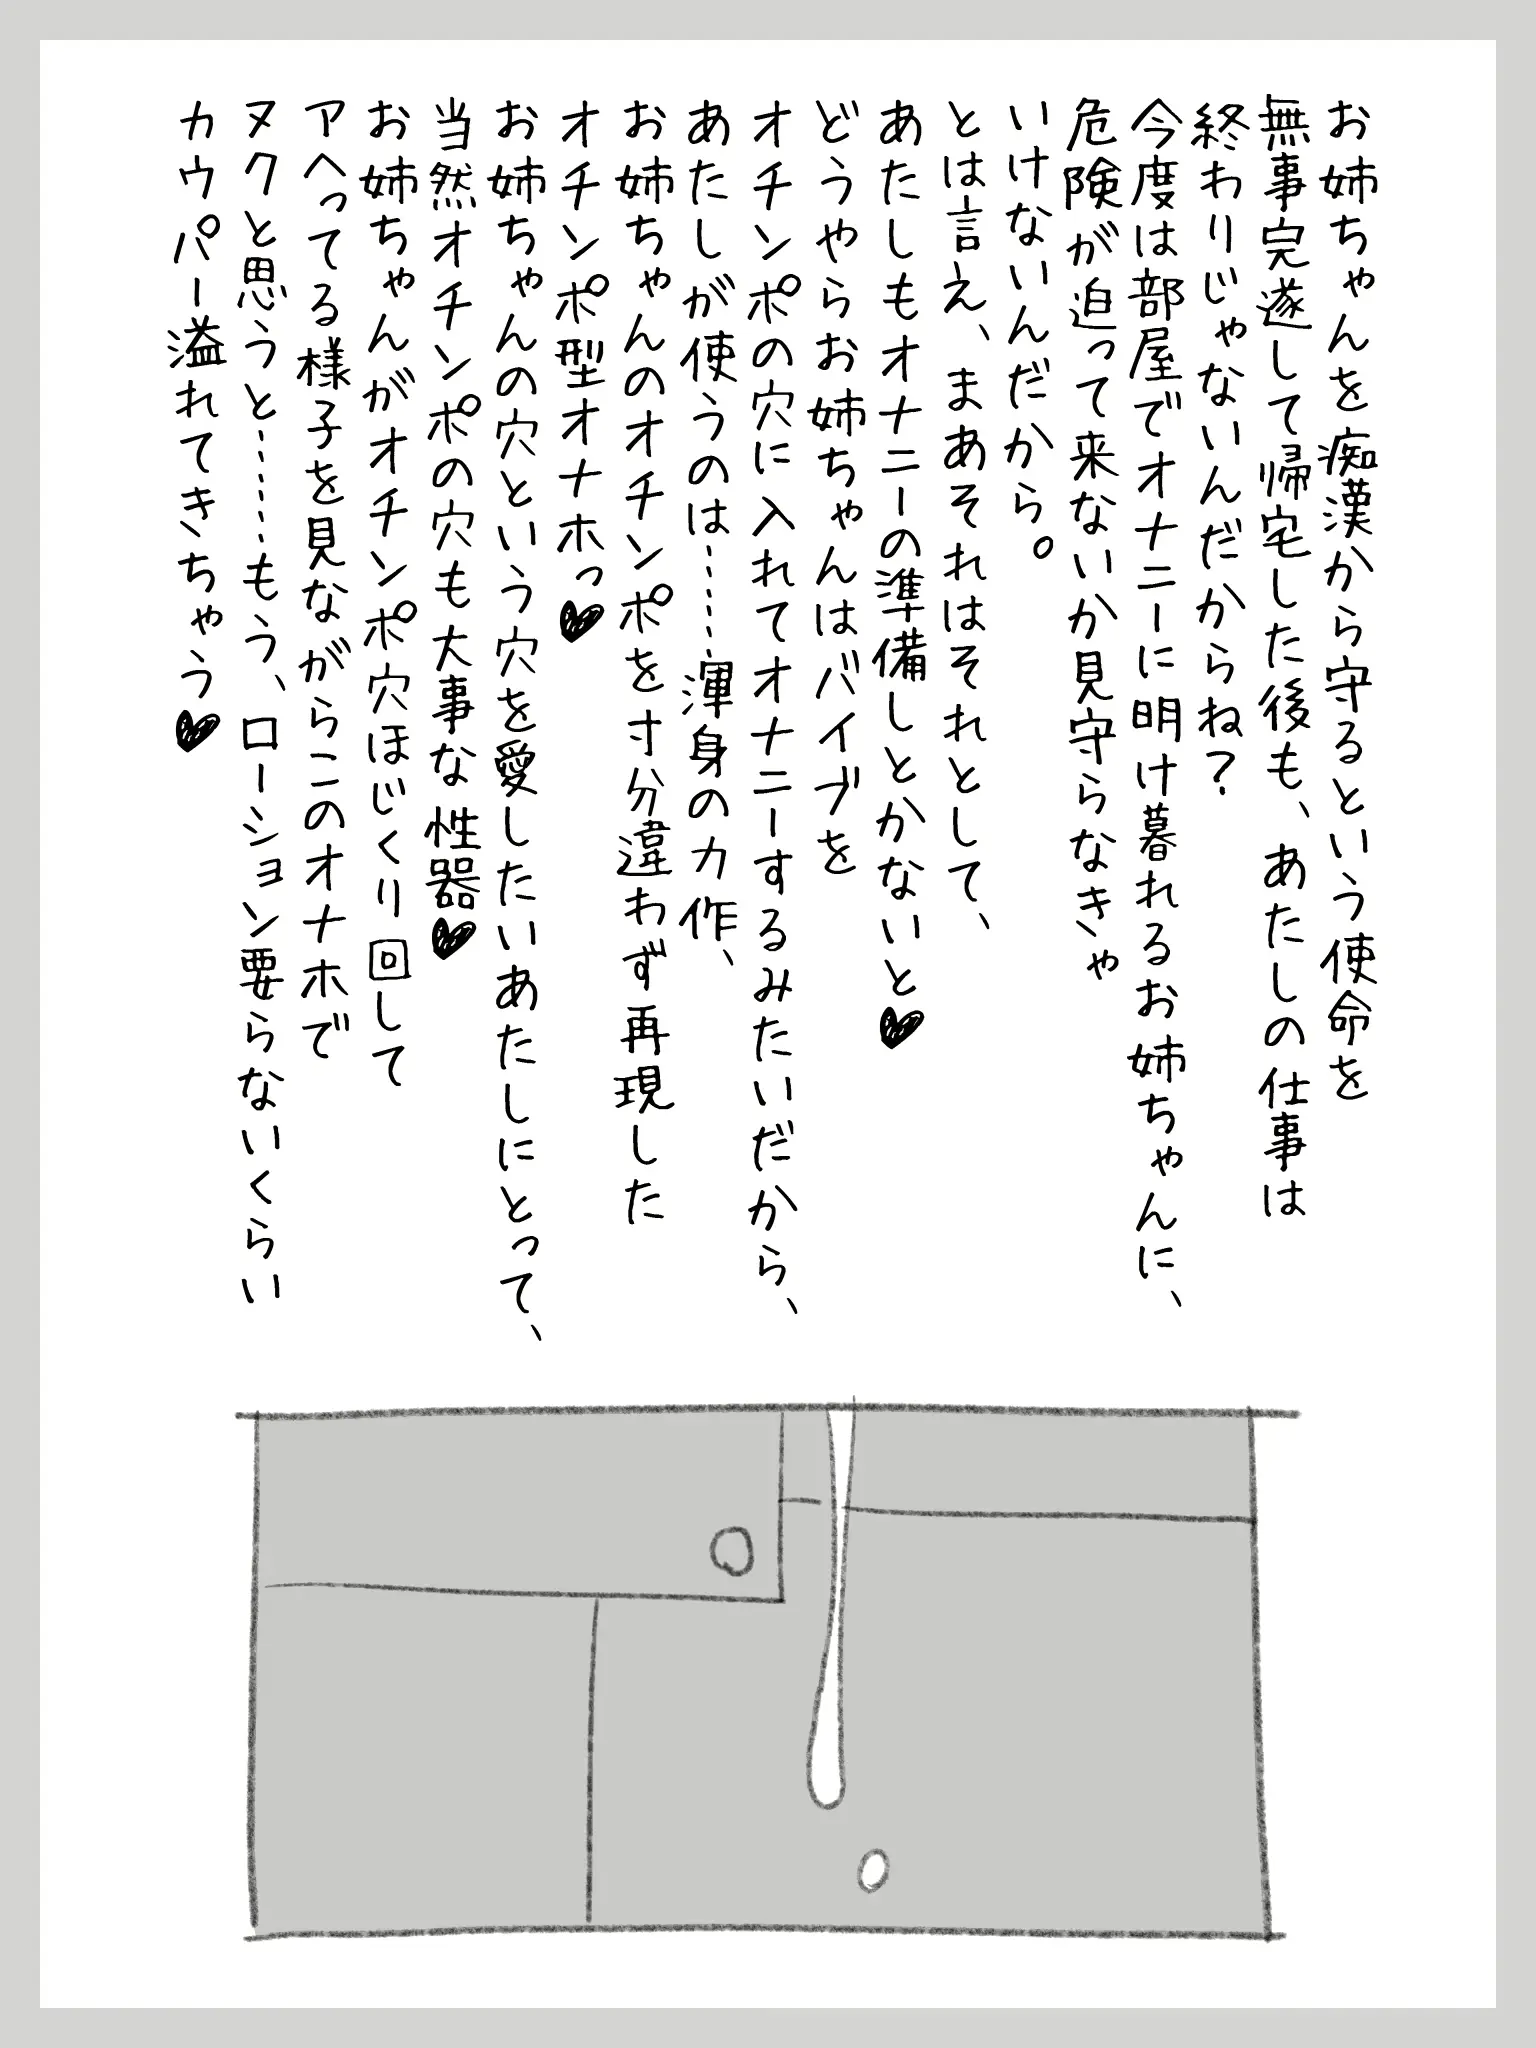 お姉ちゃんを痴漢から守るという使命を
無事完遂して帰宅した後も、あたしの仕事は
終わりじゃないんだからね?
今度は部屋でオナニーに明け暮れるお姉ちゃんに、
危険が迫って来ないか見守らなきゃ
いけないんだから。
とは言え、まあそれはそれとして、
あたしもオナニーの準備しとかないと♥
どうやらお姉ちゃんはバイブを
オチンポの穴に入れてオナニーするみたいだから、
あたしが使うのは………渾身の力作、
お姉ちゃんのオチンポを寸分違わず再現した
オチンポ型オナホっ♥
お姉ちゃんの穴という穴を愛したいあたしにとって、
当然オチンポの穴も大事な性器♥
お姉ちゃんがオチンポ穴ほじくり回して
アヘってる様子を見ながらこのオナホで
ヌクと思うと………もう、ローション要らないくらい
カウパー溢れてきちゃう♥